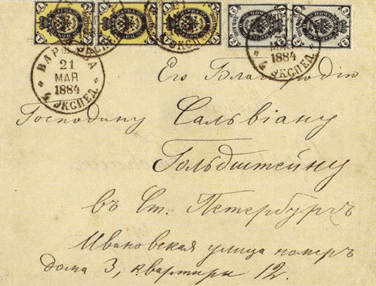 ВАРШАВА
21
МАЯ
1884
ЭКСПЕД.
1884
Его Благородію
Господину Сальвіану
Гольдштейну
въ Ст. Петербургъ
Ивановская улица номеръ
дома 3, квартиры 12.